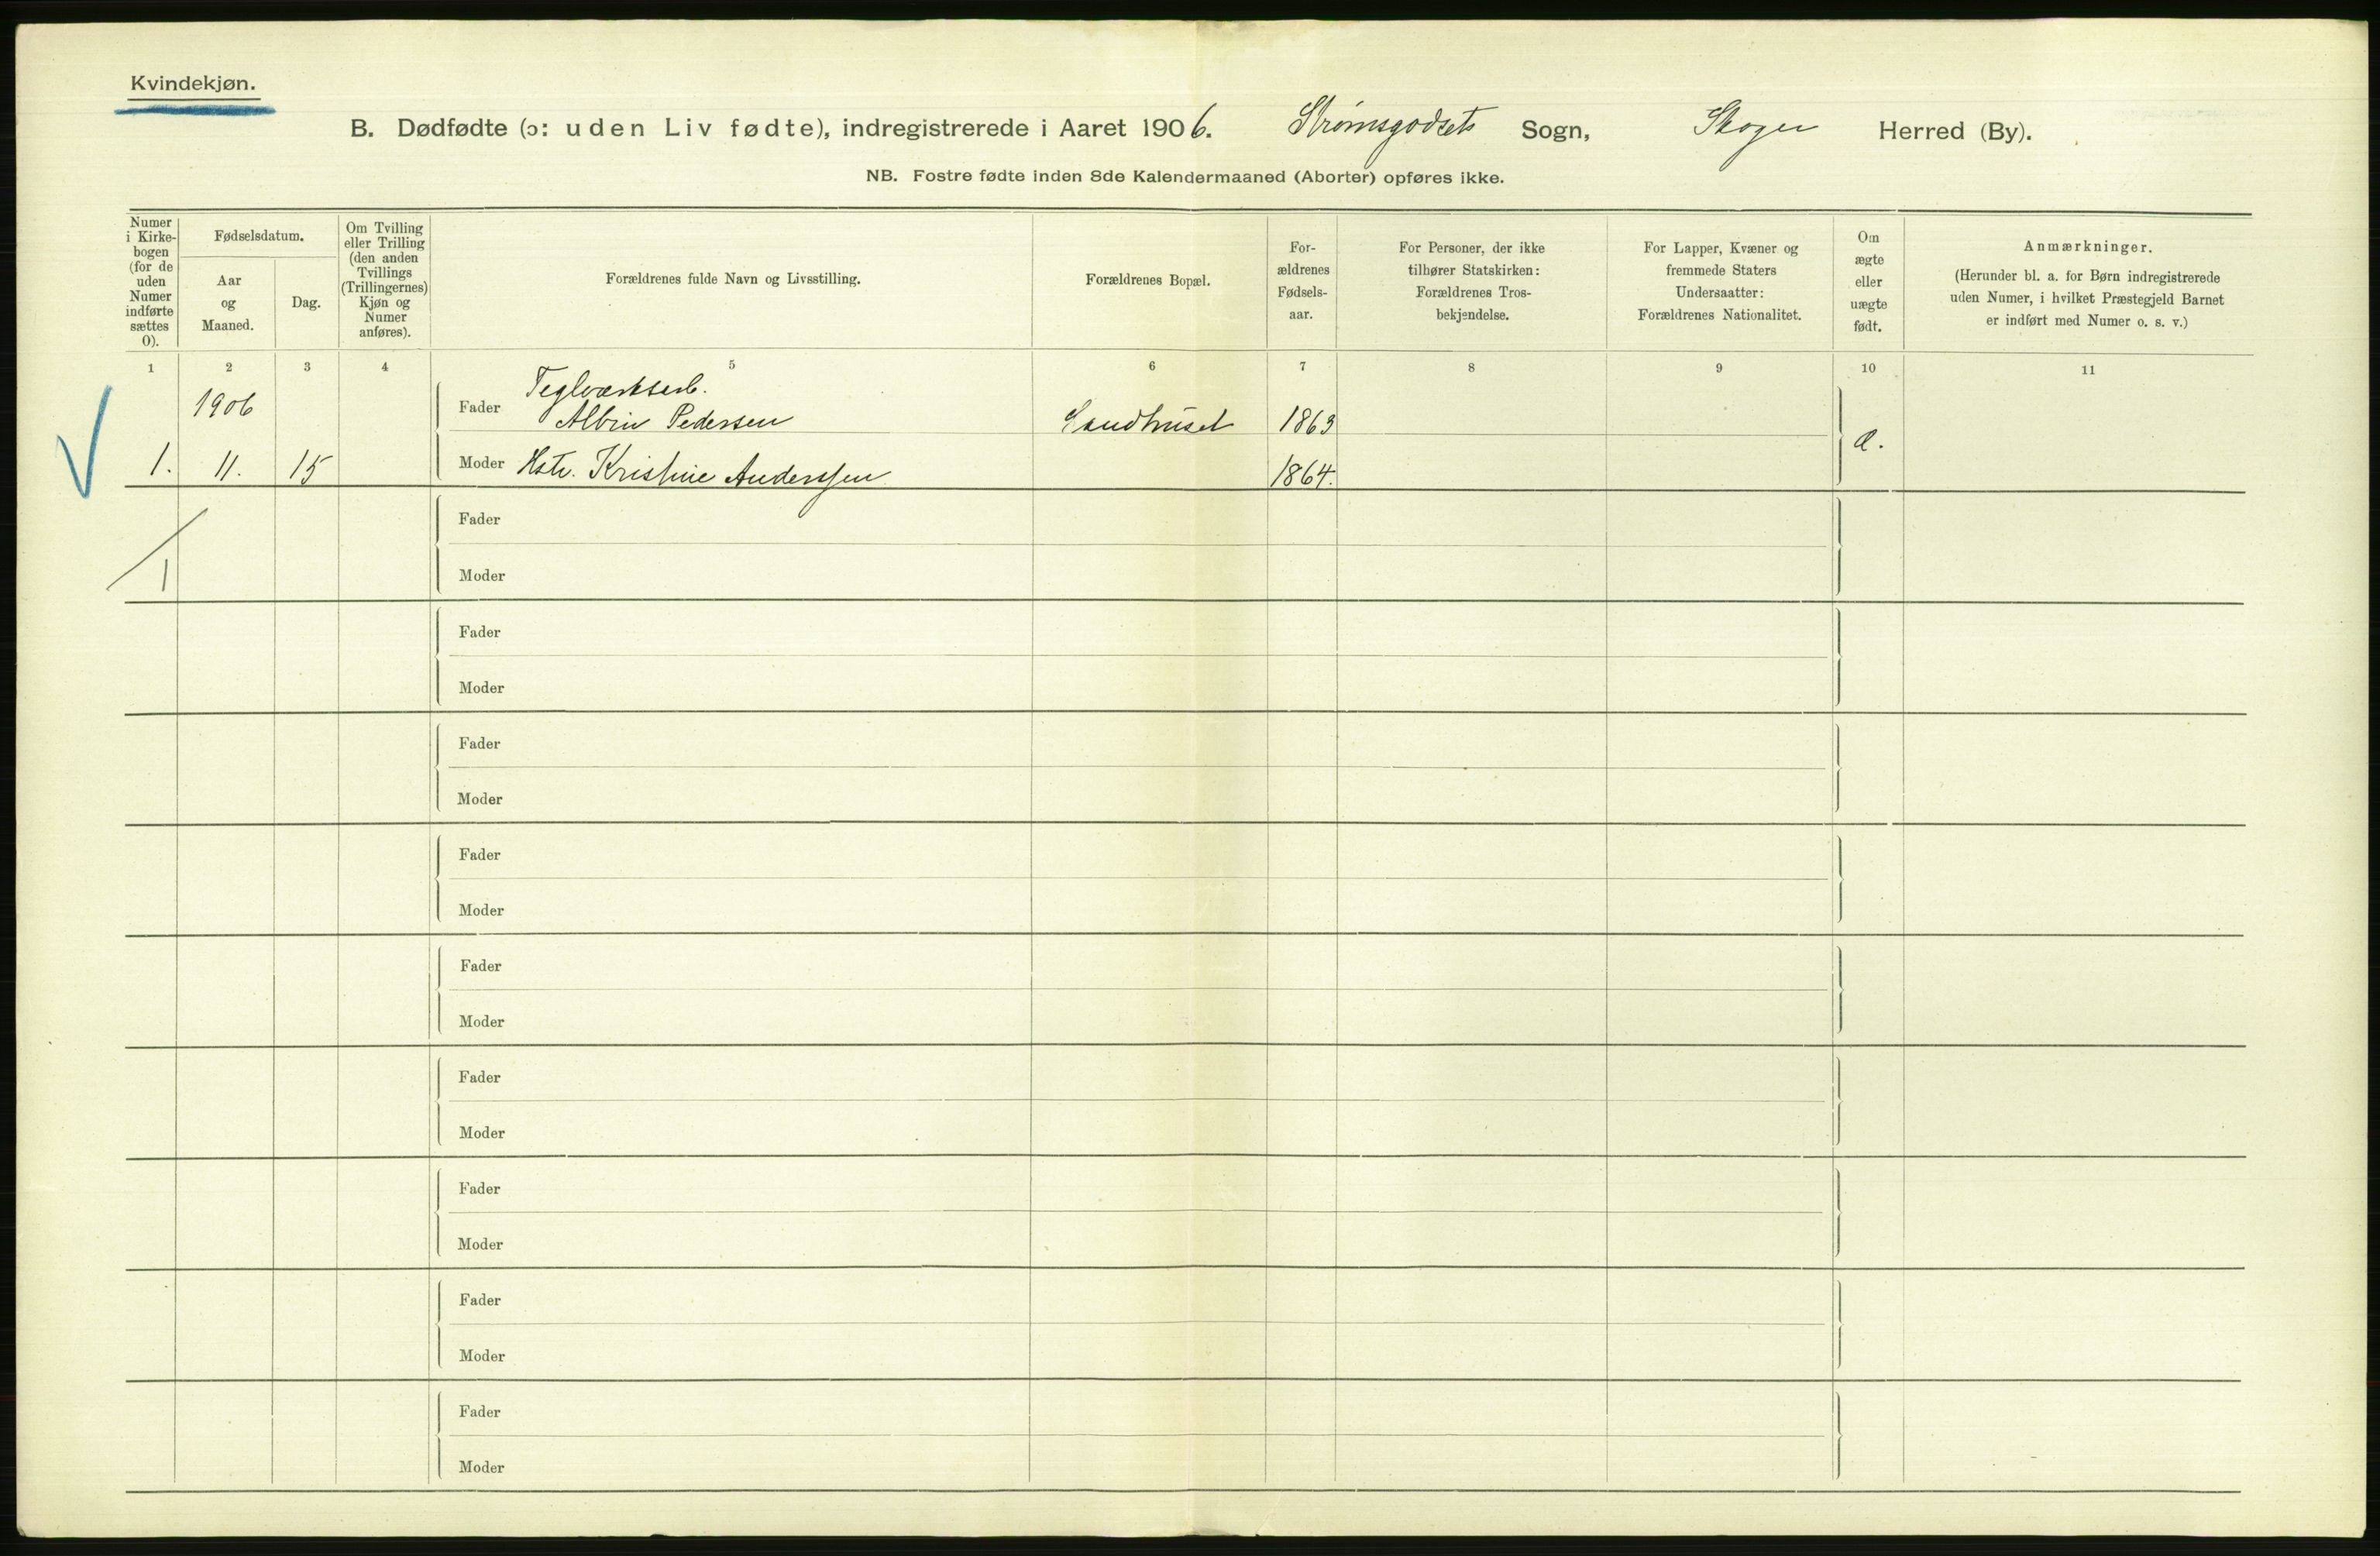 Kvindekjøn.
B. Dødfødte (ɔ: uden Liv fødte), indregistrerede i Aaret 1906. Strømsgodsets Sogn, Skoger Herred (By).
NB. Fostre fødte inden 8de Kalendermaaned (Aborter) opføres ikke.
Numer
i Kirke-
bogen
(for de
uden
Numer
indførte
sættes
0).
Fødselsdatum.
Aar
og
Maaned.
Dag.
Om Tvilling
eller Trilling
(den anden
Tvillings
(Trillingernes)
Kjøn og
Numer
anføres).
Forældrenes fulde Navn og Livsstilling.
Forældrenes Bopæl.
For-
ældrenes
Fødsels-
aar.
For Personer, der ikke
tilhører Statskirken:
Forældrenes Tros-
bekjendelse.
For Lapper, Kvæner og
fremmede Staters
Undersaatter:
Forældrenes Nationalitet.
Om
ægte
eller
uægte
født.
Anmærkninger.
(Herunder bl. a. for Børn indregistrerede
uden Numer, i hvilket Præstegjeld Barnet
er indført med Numer o. s. v.)
1 2 3 4 5 6 7 8 9 10 11
Teglværksarb.
1906 Fader Albin Pedersen Sandhuset 1863
1. 11. 15 Moder Hstr. Kristine Anderssen 1864.
Fader
1 Moder
Fader
Moder
Fader
Moder
Fader
Moder
Fader
Moder
Fader
Moder
Fader
Moder
Fader
Moder
Fader
Moder